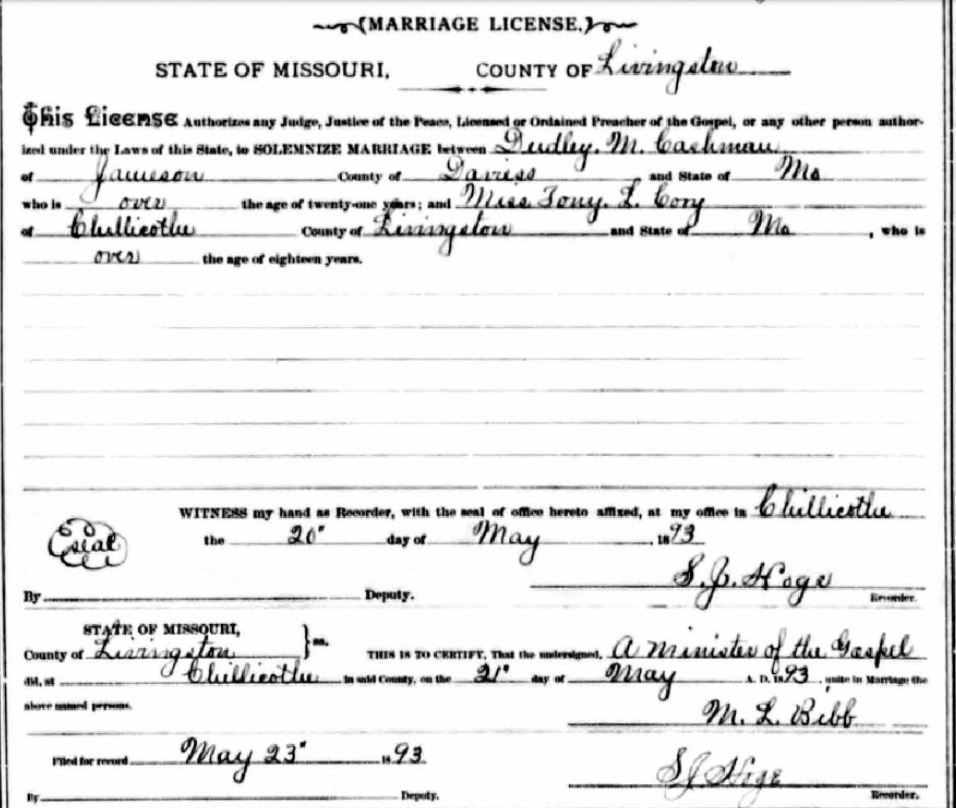 (MARRIAGE LICENSE.)
STATE OF MISSOURI, COUNTY OF Livingston
This License Authorizes any Judge, Justice of the Peace, Licensed or Ordained Preacher of the Gospel, or any other person author-
ized under the Laws of this State, to SOLEMNIZE MARRIAGE between Dudley. M. Cashman
of Jameson County of Daviess and State of Mo
who is over the age of twenty-one years; and Miss Tony. L. Cory
of Chillicothe County of Livingston and State of Mo , who is
over the age of eighteen years.
WITNESS my hand as Recorder, with the seal of office hereto affixed, at my office in Chillicothe
seal the 20" day of May 1893
S. J. Hoge
By Deputy. Recorder.
STATE OF MISSOURI,
County of Livingston } ss. THIS IS TO CERTIFY, That the undersigned, A Minister of the Gospel
did, at Chillicothe in said County, on the 21" day of May A. D. 1893, unite in Marriage the
above named persons.
M. L. Bibb
Filed for record May 23" 1893
S J Hoge
By Deputy. Recorder.